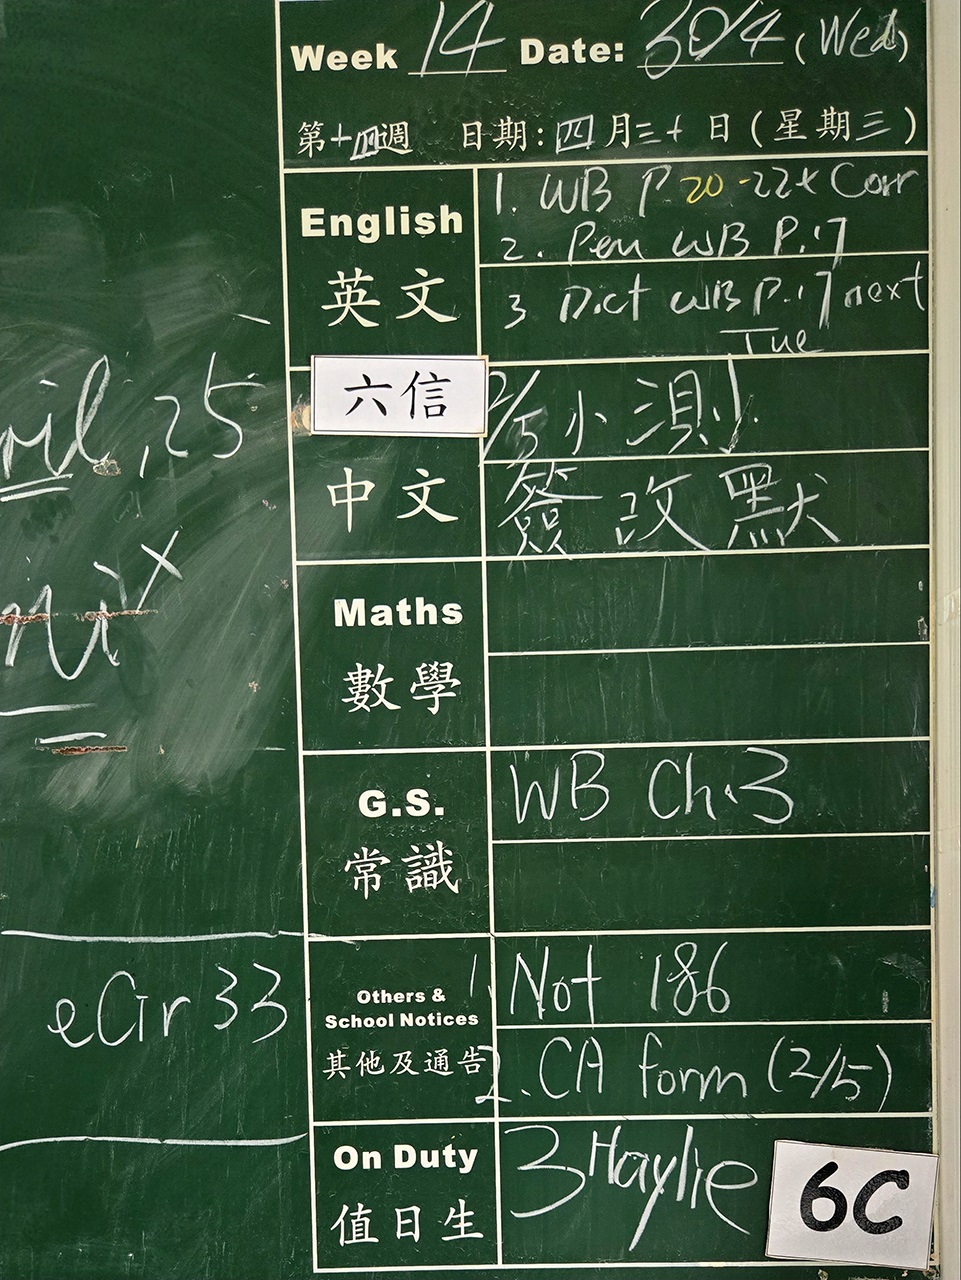 Week 14 Date: 30/4 (Wed)
第十四週 日期：四月三十日（星期三）
English
英文
1. WB P 20-22 + Corr
2. Pen WB P.17
3 Dict WB P.17 next
Tue
六信
中文
2/5 小測
簽改默
Maths
數學
G.S.
常識
WB Ch.3
Others &
School Notices
其他及通告
1. Not 186
2. CA form (2/5)
On Duty
值日生
3 Haylie
6C
ril, 25
eCir 33